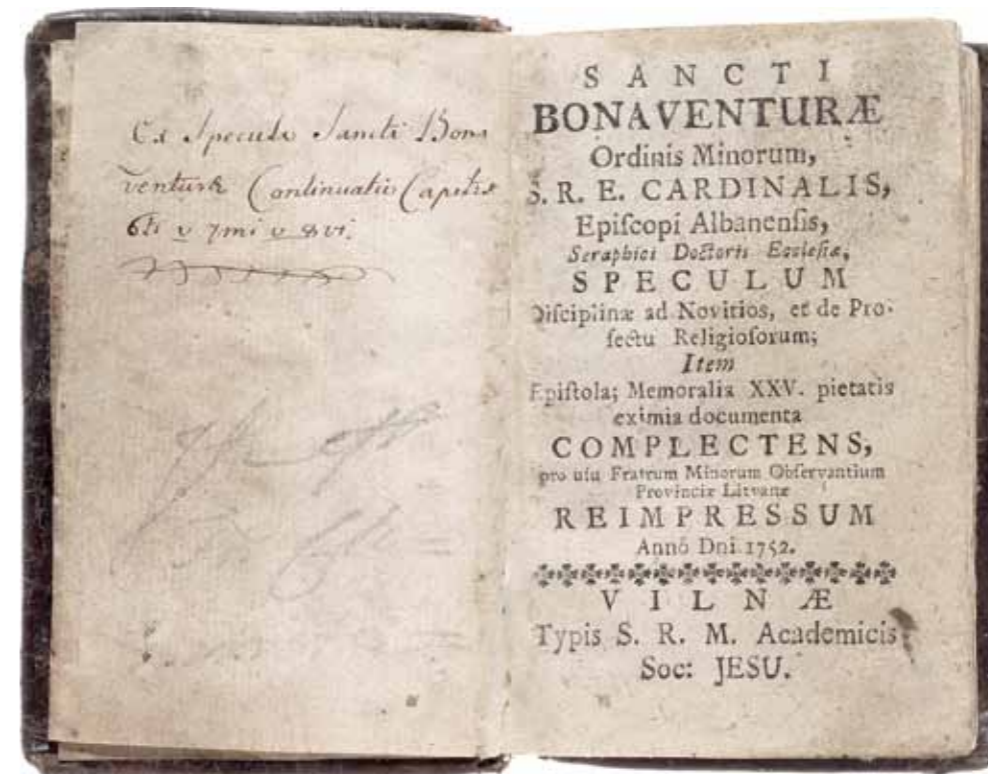 Ex Speculo Sancti Bona
venturæ Continuatio Capitis
6ti v 7mi v 8vi.
SANCTI
BONAVENTURÆ
Ordinis Minorum,
S. R. E. CARDINALIS,
Epiſcopi Albanenſis,
Seraphici Doctoris Eccleſiæ,
SPECULUM
Diſciplinæ ad Novitios, et de Pro-
fectu Religioſorum;
Item
Epiſtola; Memoralia XXV. pietatis
eximia documenta
COMPLECTENS,
pro uſu Fratrum Minorum Obſervantium
Provinciæ Litvanæ
REIMPRESSUM
Annô Dni 1752.
VILNÆ
Typis S. R. M. Academicis
Soc: JESU.